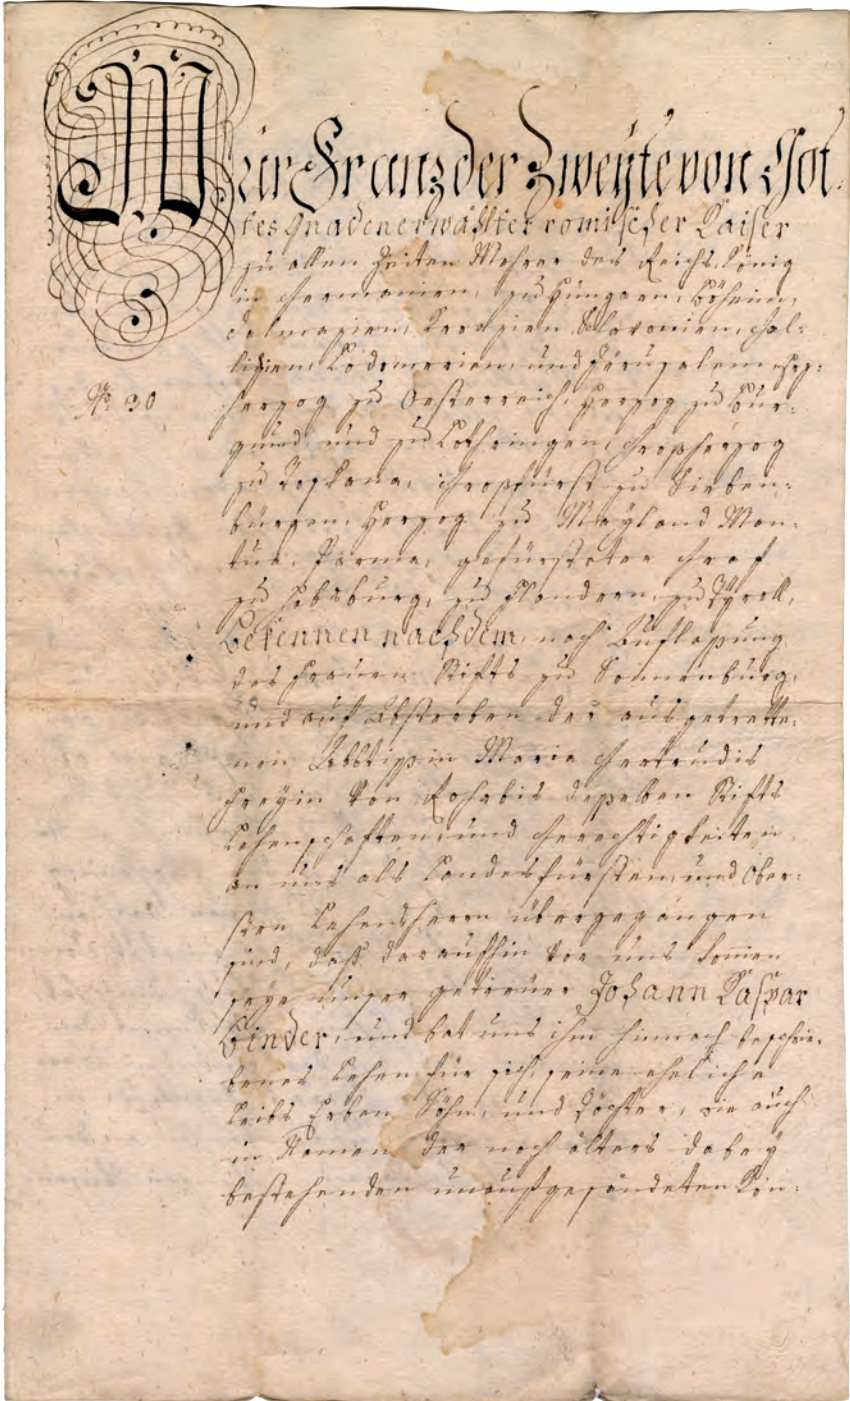 Wir Franz der Zweyte von Got-
tes Gnaden erwählter römischer Kaiser
zu allen Zeiten Mehrer des Reichs, König
in Germanien, zu Hungarn, Böheim,
Dalmazien, Kroazien, Slavonien, Gal-
lizien, Lodomerien, und Jerusalem, Erz-
herzog zu Oesterreich, Herzog zu Bur-
gund, und zu Lothringen, Großherzog
zu Toskana, Großfürst zu Sieben-
bürgen, Herzog zu Mayland, Man-
tua, Parma, gefürsteter Graf
zu Habsburg, zu Flandern, zu Tyroll,
Bekennen nachdem, nach Auflassung
des Frauen Stifts zu Sonnenburg,
und auf Absterben der ausgetrette-
nen Abbtissin Maria Gertrudis
Freyin von desselben Stifts
Lehenschaften, und Gerechtigkeiten
an uns als Landesfürsten, und Ober-
sten Lehensherrn übergegangen
sind, daß daraufhin vor uns komen
seye unser getreuer Johann Kaspar
Binder, und bat uns ihm hienach beschrie-
benes Lehen für sich, seine eheliche
Leibs Erben Söhn, und Töchter, wie auch
in Namen der noch älters dabey
bestehenden Kin-
No. 30